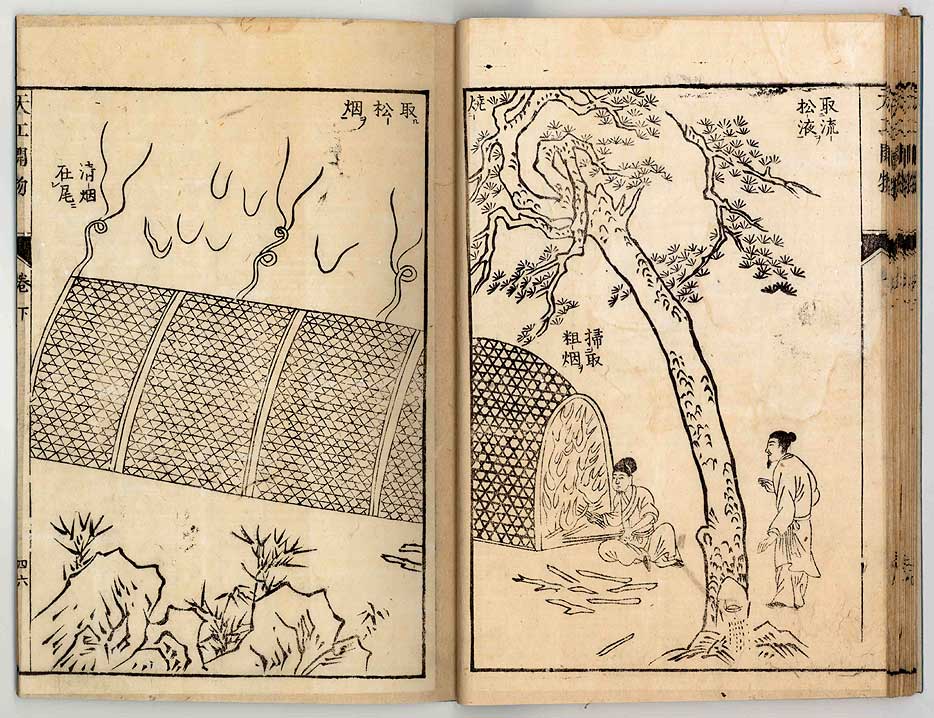 取流
松液
掃取
粗烟
燒
取松烟
清烟
在尾
天工開物
卷下
四六